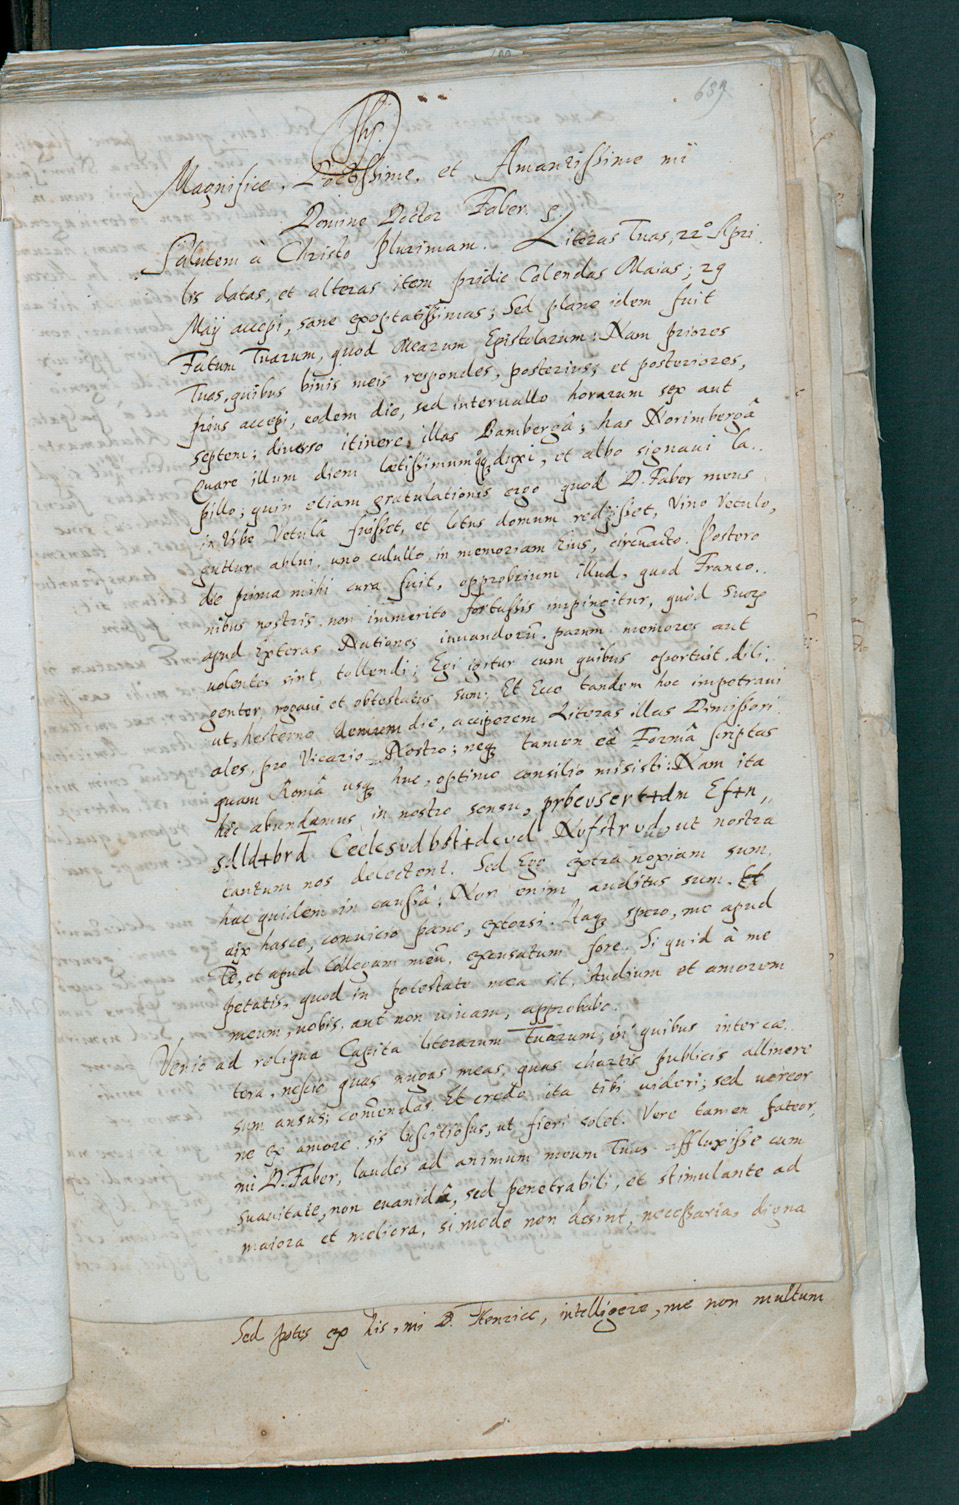 689.
Jhs.
Magnifice, Doctissime, et Amantissime mi
Domine Doctor Faber &.
Salutem a Christo plurimam. Literas Tuas, 22° Apri-
lis datas, et alteras item pridie Calendas Maias; 29
Maij accepi, sane exoptatissimas; Sed plane idem fuit
Fatum Tuarum, quod Mearum Epistolarum: Nam priores
Tuas, quibus binis meis respondes, posterius; et posteriores,
prius accepi, eodem die, sed intervallo horarum sex aut
septem; diverso itinere; illas Bambergâ; has Norimbergâ
Quare illum diem lætissimumq dixi, et albo signavi la-
pillo; quin etiam gratulationis ergo quod D. Faber meus
in Urbe Vetula fuisset, et letus domum redisset, Vino Vetulo,
guttur ablui, uno culullo in memoriam Eius, circuacto. Postero
die prima mihi cura fuit, opprobrium illud, quod Franco-
nibus nostris non immerito fortassis impingitur, quòd suorum
apud Exteras Nationes iuuandorū parum memores aut
uolentes sint, tollendi; Egi igitur cum quibus oportuit dili-
genter, rogaui et obtestatus sum; Et Ecce tandem hoc impetraui
ut, hesterno demum die, acciperem Literas illas Dimissori-
ales, pro Vicario Nostro; neq tamen eâ Formâ scriptas
quam Româ usq huc, optimo consilio misisti: Nam ita
hic abundamus in nostro sensu,
ut nostra
tantum nos delectent. Sed Ego extra noxiam sum
hac quidem in caussâ; Non enim auditus sum. Et
uix hasce, conuicio pæne, extorsi. Itaq spero, me apud
Te, et apud Collegam meū, excusatum fore. Si quid à me
petatis, quod in potestate mea sit, studium et amorem
meum, uobis, aut non uiuam, approbabo.
Venio ad reliqua Capita literarum Tuarum; in quibus inter cæ-
tera, nescio quas nugas meas, quas chartis publicis allinere
sum ansus; com̄endas. Et credo ita tibi uideri; sed uereor
ne ex amore sis lusciciosus, ut fieri solet. Vere tamen fateor,
mi D. Faber, laudes ad animum meum Tuas affluxisse cum
suauitate, non euanidâ, sed penetrabili, et stimulante ad
maiora et meliora, si modo non desint, necessaria, digna
Sed potes ex his, mi D. Henrice, intelligere, me non multum